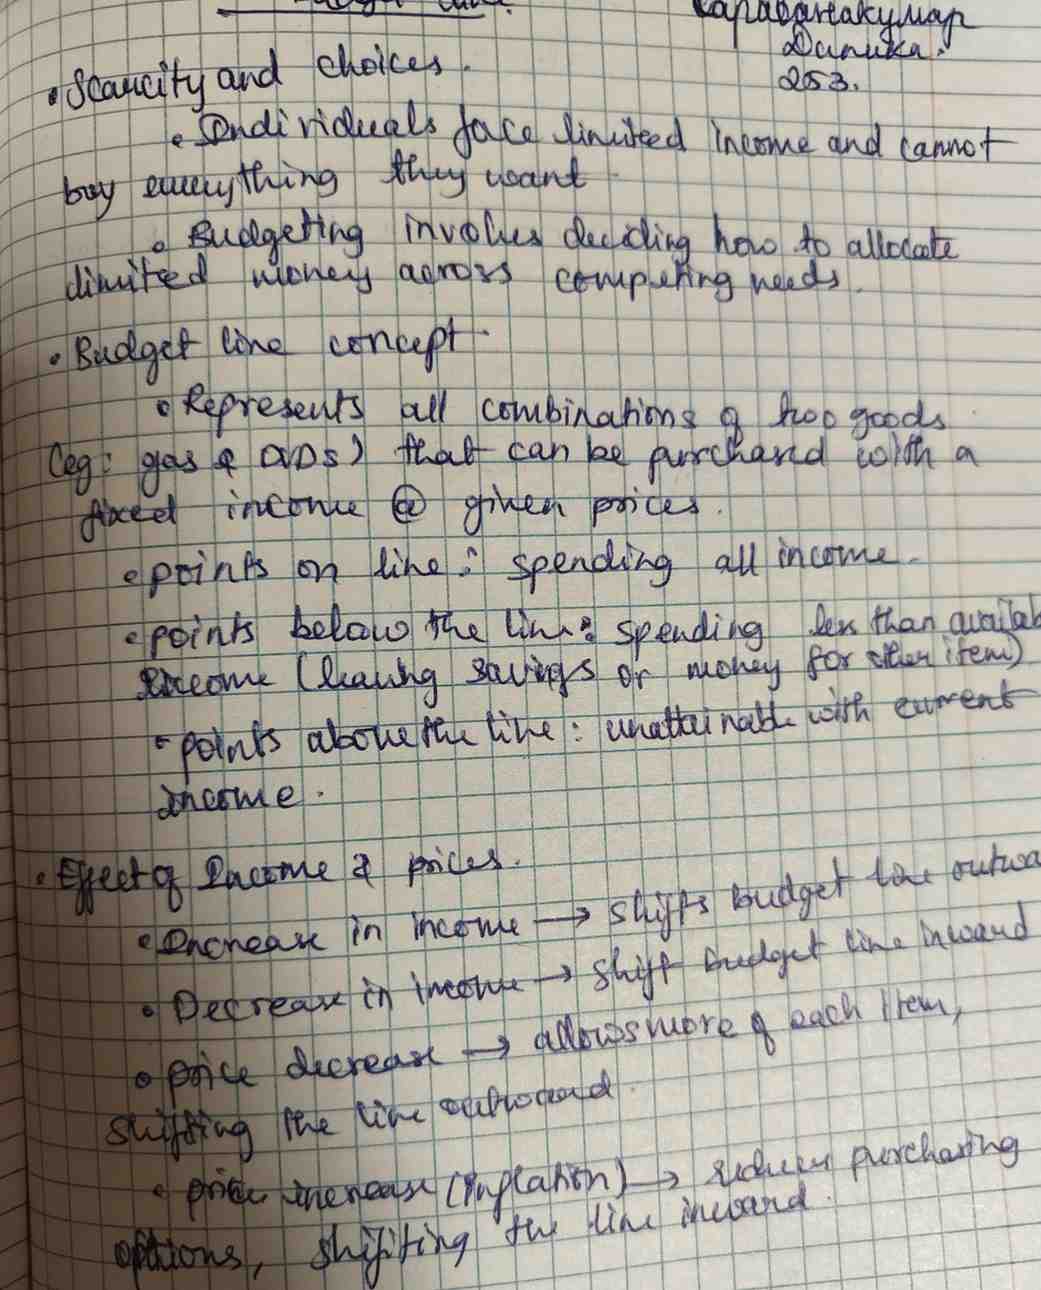 Budget line.
Сарававанакумар
Данука.
253.
• Scarcity and choices.
• Individuals face limited income and cannot
buy everything they want
• Budgeting involves deciding how to allocate
limited money across competing needs.
• Budget line concept.
• Represents all combinations of two goods
(eg: gas & DVDs) that can be purchased with a
fixed income @ given prices.
• points on line: spending all income.
• points below the line: spending less than availab
income (leaving savings or money for other item)
• points above the line: unattainable with current
income.
• Effect of Income & prices.
• Increase in income → shifts budget line outwa
• Decrease in income → shift budget line inward
• price decrease → allows more of each item,
shifting the line outward.
• price increase (inflation) → reduces purchasing
options, shifting the line inward.